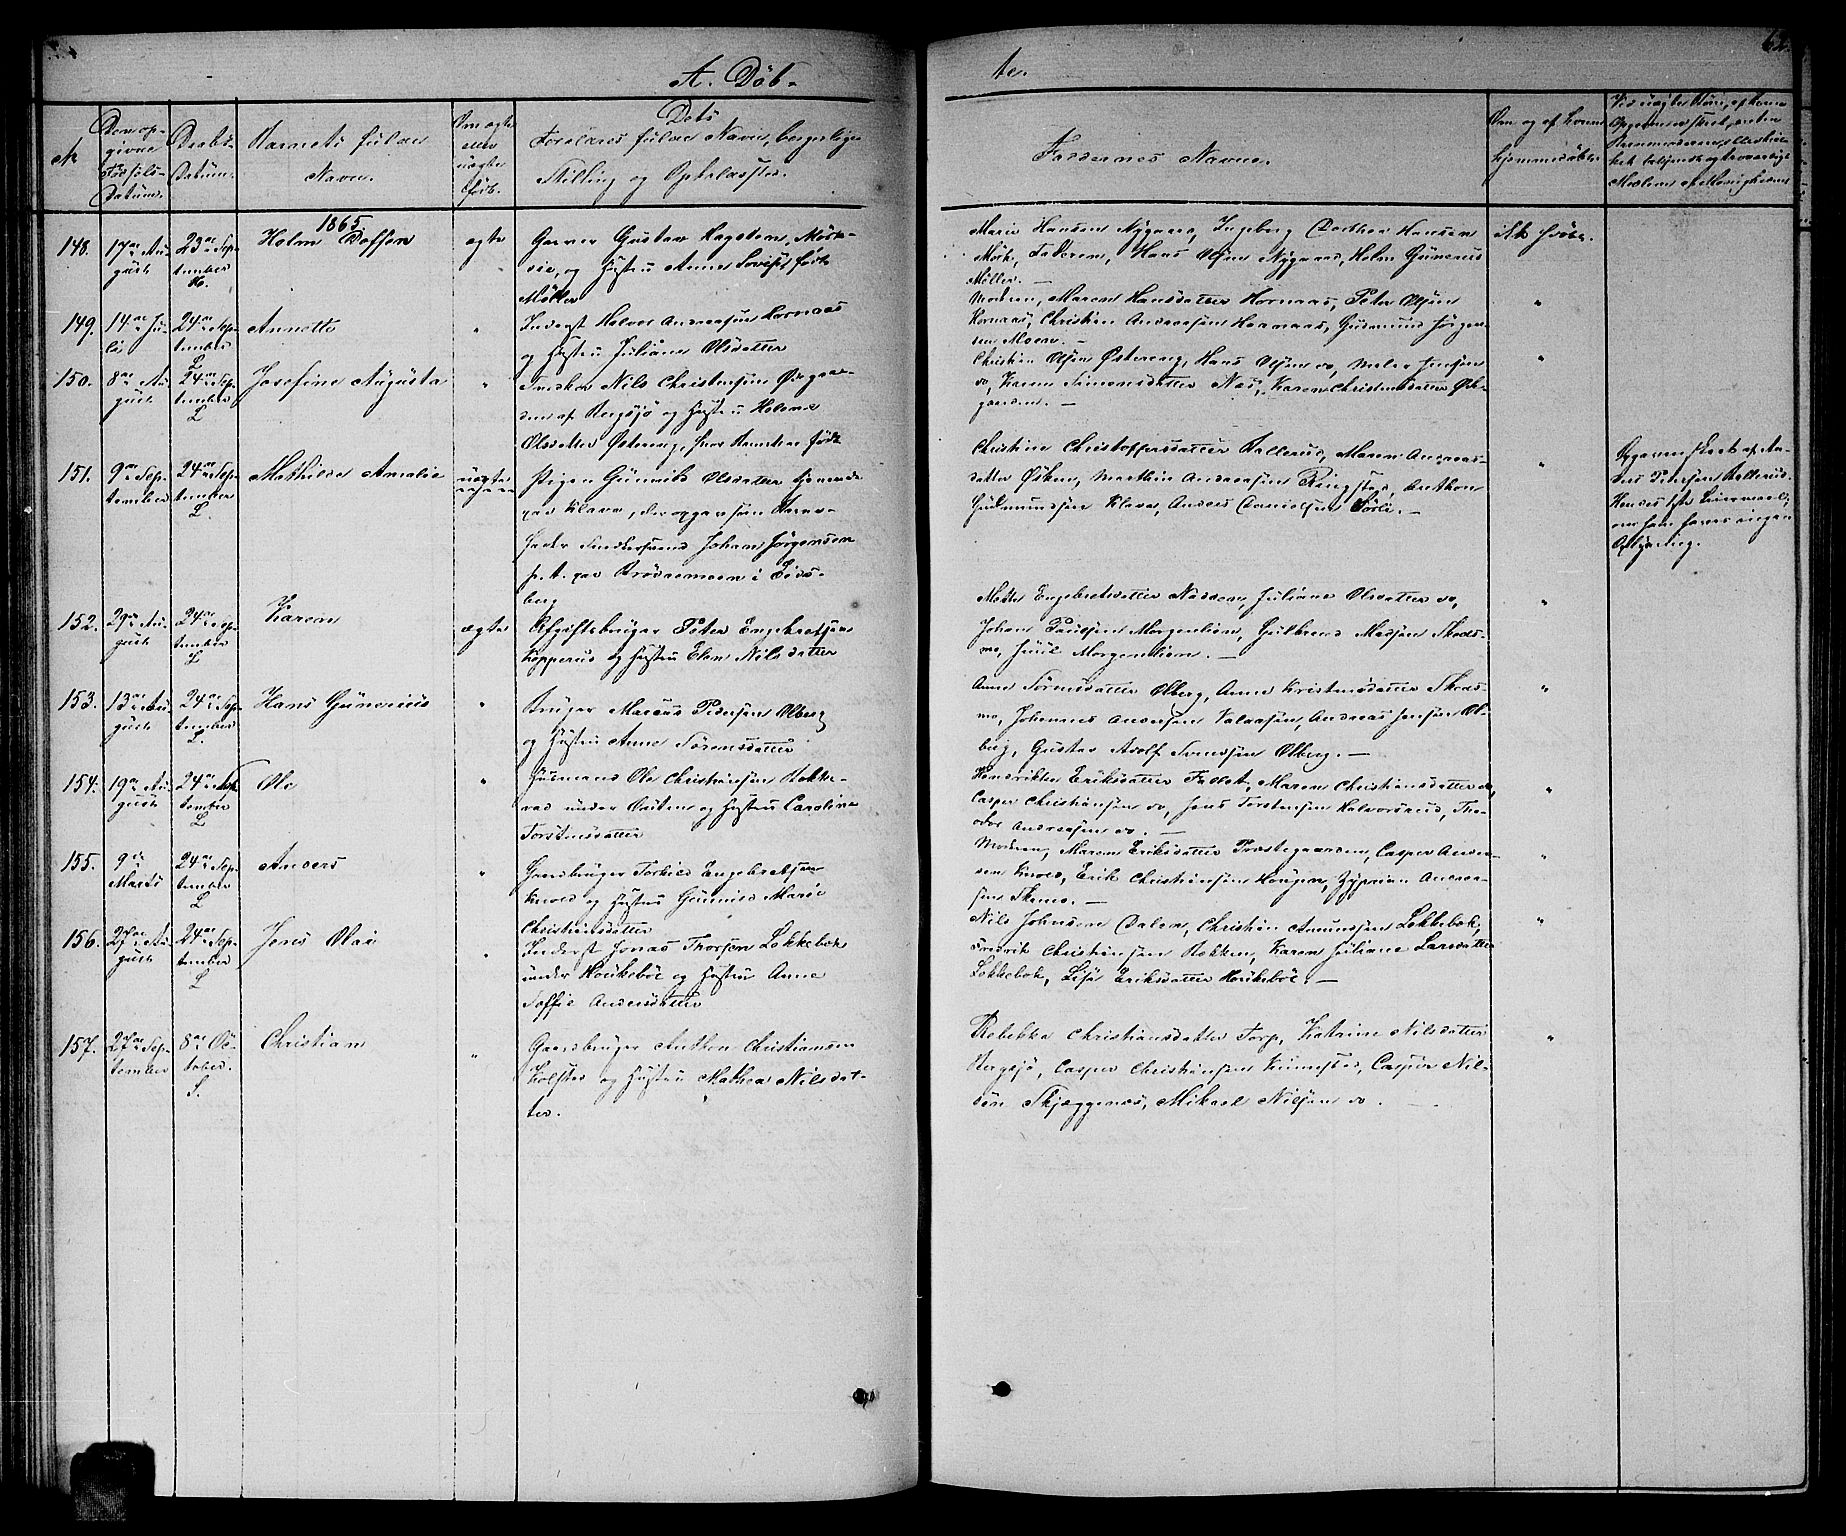 A. Döb-
te.
№
Den op-
givne
Födsels-
Datum.
Daabs-
Datum.
Barnets fulde
Navn.
Om ægte
eller
uægte
født.
Dets
Forældres fulde Navn, borgerlige
Stilling og Opholdssted.
Faddernes Navne.
Om og af hvem
hjemmedøbt.
1865
148.
17de Au-
gust
23de Sep-
tember
Holm Doffen
ægte
Garver Gustav Hagsteen, Möske-
vie, og Hustru Anne Lovise, født
Möller
Marie Hansen Nygaard, Ingeborg Dorthea Hansen
Mörk, Faderen, Hans Olsen Nygaard, Holm Gunerus
Möller. —
ikke hjdöbt.
149.
14de Ju-
li
24de Sep-
tember
L
Annette
"
Inderst Halvor Andreasen Hornaas
og Hustru Juliane Olsdatter
Modren, Maren Hansdatter Hornaas, Peter Olsen
Hornaas, Christian Andreasen Hornaas, Gudmund Jörgen-
sen Moen. —
"
150.
8de Au-
gust
24de Sep-
tember
L
Josefine Augusta
"
Snedker Nils Christensen Östgaar-
den af Bergsjö og Hustru Helene
Olsdatter Östereng, hvor Barnet er født
Christian Olsen Östereng, Hans Olsen do, Jensen
do, Karen Simensdatter Næs, Karen Christensdatter Öst-
gaarden. —
"
151.
9de Sep-
tember
24de Sep-
tember
L.
Mathilde Amalie
uægte
Pigen Gunnild Olsdatter tjenende
paa Klave, der opgav som Barne-
fader Johan Jörgensen
p. t. paa Brödremoen i Eids-
berg
Christine Christoffersdatter Kallerud, Maren Andreas-
datter Öiken, Martin Andreasen Ringstad, Anthon
Gudmundsen Klave, Anders Danielsen Sörli. —
"
Opgaven skeet af An-
ders Petersen Kallerud.
Hendes 1ste Leiermaal;
om han haves ingen
Oplysning.
152.
29de Au-
gust
24de Sep-
tember
L
Karen
ægte
Afgiftsbruger Peter Engebretsen
Kopperud og Hustru Elen Nilsdatter
Mathea Engebretsdatter Narden, Juliane Olsdatter do,
Johan Paulsen Morgenlien, Gulbrand Madsen Skods-
mo, Juul Morgenlien. —
"
153.
13de Au-
gust
24de Sep-
tember
L.
Hans Gunerius
"
Bruger Marcus Pedersen Olberg
og Hustru Anne Sörensdatter
Anne Sörensdatter Olberg, Anne Kristensdatter Skods-
mo, Johannes Andersen Kalaasen, Andreas Jensen Ol-
berg, Gustav Adolf Svendsen Olberg. —
"
154.
19de Au-
gust
24de Sep-
tember
L
Ole
"
Huusmand Ole Christiansen Bokke-
rud under Östen og Hustru Caroline
Torstensdatter
Hendrikke Eriksdatter Fallet, Maren Christiansdatter do,
Casper Christiansen do, Jens Torstensen Halvorsrud, Theo-
dor Andreasen do. —
"
155.
9de
Marts
24de Sep-
tember
L
Anders
"
Gaardbruger Torkild Engebretsen
Knold og Hustru Gunnild Marie
Christiansdatter
Modren, Maren Eriksdatter Præstegaarden, Casper Ander-
sen Knold, Erik Christiansen Haugen, Zyprian Andrea-
sen Skamo. —
"
156.
27de Au-
gust
24de Sep-
tember
L
Jens Olai
"
Inderst Jonas Thorsen Løkkebek
under Houkeböe og Hustru Anne
Soffie Andersdatter
Nils Johnsen Dalen, Christian Amundsen Løkkebek,
Fredrik Christiansen Rokken, Karen Juliane Larsdatter
Løkkebek, Lise Eriksdatter Houkeböe. —
"
157.
27de Sep-
tember
8de Oc-
tober.
S.
Christian
"
Gaardbruger Anthon Christiansen
Kolstad og Hustru Mathea Nilsdat-
ter.
Rebekka Christiansdatter Torp, Katrine Nilsdatter
Bergsjö, Casper Christiansen Kinnestad, Casper Nil-
sen Skjæggenæs, Mikael Nilsen do. —
"